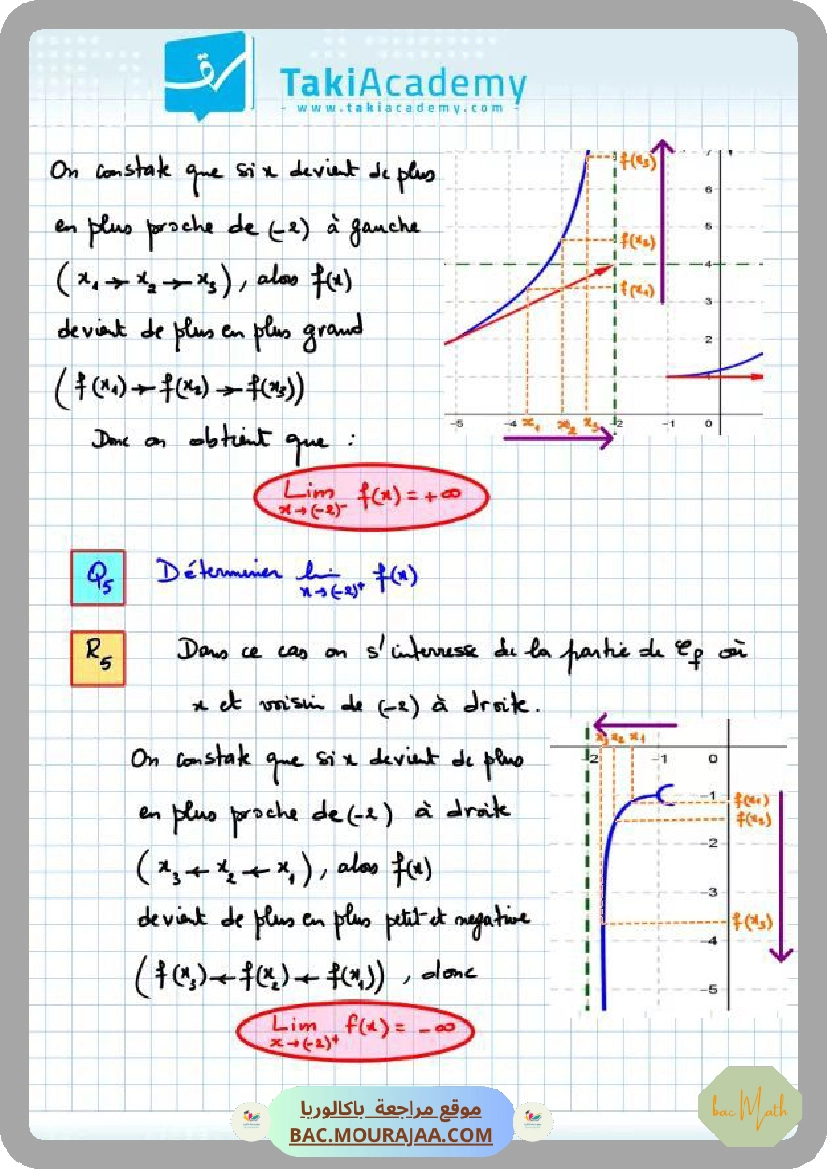 TakiAcademy
- www.takiacademy.com -
On constate que si x devient de plus
en plus proche de (-2) à gauche
(x₁ → x₂ → x₃), alors f(x)
devient de plus en plus grand
(f(x₁) → f(x₂) → f(x₃))
Donc on obtient que :
Lim f(x) = +∞
x→(-2)⁻
7
6
5
4
3
2
1
f(x₃)
f(x₂)
f(x₁)
-5 -4 x₁ x₂ x₃ -2 -1 0
Q₅ Déterminer lim f(x)
x→(-2)⁺
R₅ Dans ce cas on s'interresse de la partie de 𝒞f où
x et voisin de (-2) à droite.
On constate que si x devient de plus
en plus proche de (-2) à droite
(x₃ ← x₂ ← x₁), alors f(x)
devient de plus en plus petit et negative
(f(x₃) ← f(x₂) ← f(x₁)), donc
Lim f(x) = -∞
x→(-2)⁺
x₃ x₂ x₁
2 -1 0
-1 f(x₁)
f(x₂)
-2
-3
f(x₃)
-4
-5
موقع مراجعة باكالوريا
BAC.MOURAJAA.COM
bac Math